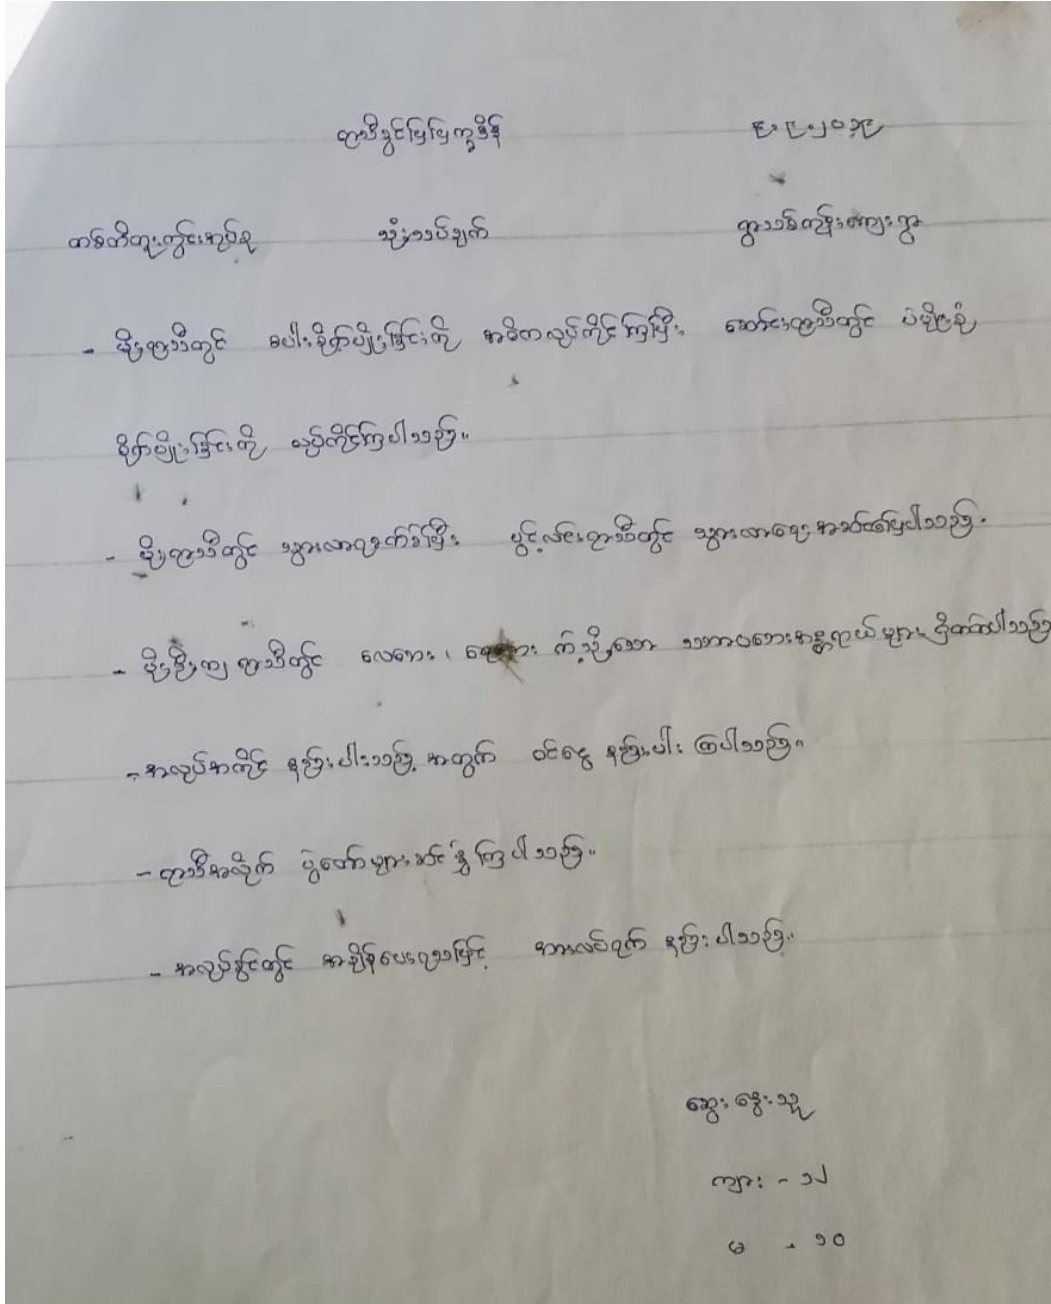 ရာသီခွင်ပြပြက္ခဒိန် ၉.၉.၂၀၁၉
တစ်တီတူးတွင်းအုပ်စု သုံးသပ်ချက် ရွာသစ်ကုန်းကျေးရွာ
- မိုးရာသီတွင် စပါးစိုက်ပျိုးခြင်းကို အဓိကလုပ်ကိုင်ကြပြီး ဆောင်းရာသီတွင် ပဲမျိုးစုံ
စိုက်ပျိုးခြင်းကို လုပ်ကိုင်ကြပါသည်။
- မိုးရာသီတွင် သွားလာရခက်ခဲပြီး ပွင့်လင်းရာသီတွင် သွားလာရေးအဆင်ပြေပါသည်။
- မိုးဦးကျ ရာသီတွင် လေဘေး၊ ကဲ့သို့သော သဘာဝဘေးအန္တရာယ်များ ပါသည်
- အလုပ်အကိုင် နည်းပါးသည့် အတွက် ဝင်ငွေ နည်းပါး ကြပါသည်။
- ရာသီအလိုက် ပွဲတော်များဆင်နွှဲကြပါသည်။
- အလုပ်ခွင်တွင် အချိန်ပေးရသဖြင့် အားလပ်ရက် နည်းပါသည်။
ဆွေးနွေးသူ
ကျား - ၁၂
မ - ၁၀